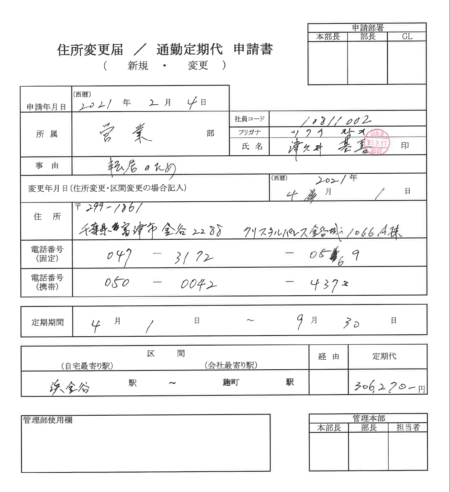 申請部署
本部長 部長 GL
住所変更届 ／ 通勤定期代 申請書
( 新規 ・ 変更 )
(西暦)
申請年月日 2021 年 2 月 4 日
社員コード 10811002
所属 営業 部
フリガナ
氏名 津久井 印
事由 転居のため
変更年月日(住所変更・区間変更の場合記入)
(西暦) 2021 年
4 月 1 日
住所
〒299-1861
千葉県富津市金谷2288 クリスタルパレス金谷 1066 A棟
電話番号
(固定) 047 － 3172 －
電話番号
(携帯) 050 － 0042 －
定期期間 4 月 1 日 ～ 9 月 30 日
区間 経由 定期代
(自宅最寄り駅) (会社最寄り駅)
浜金谷 駅 ～ 麹町 駅 306,270- 円
管理部使用欄
管理本部
本部長 部長 担当者